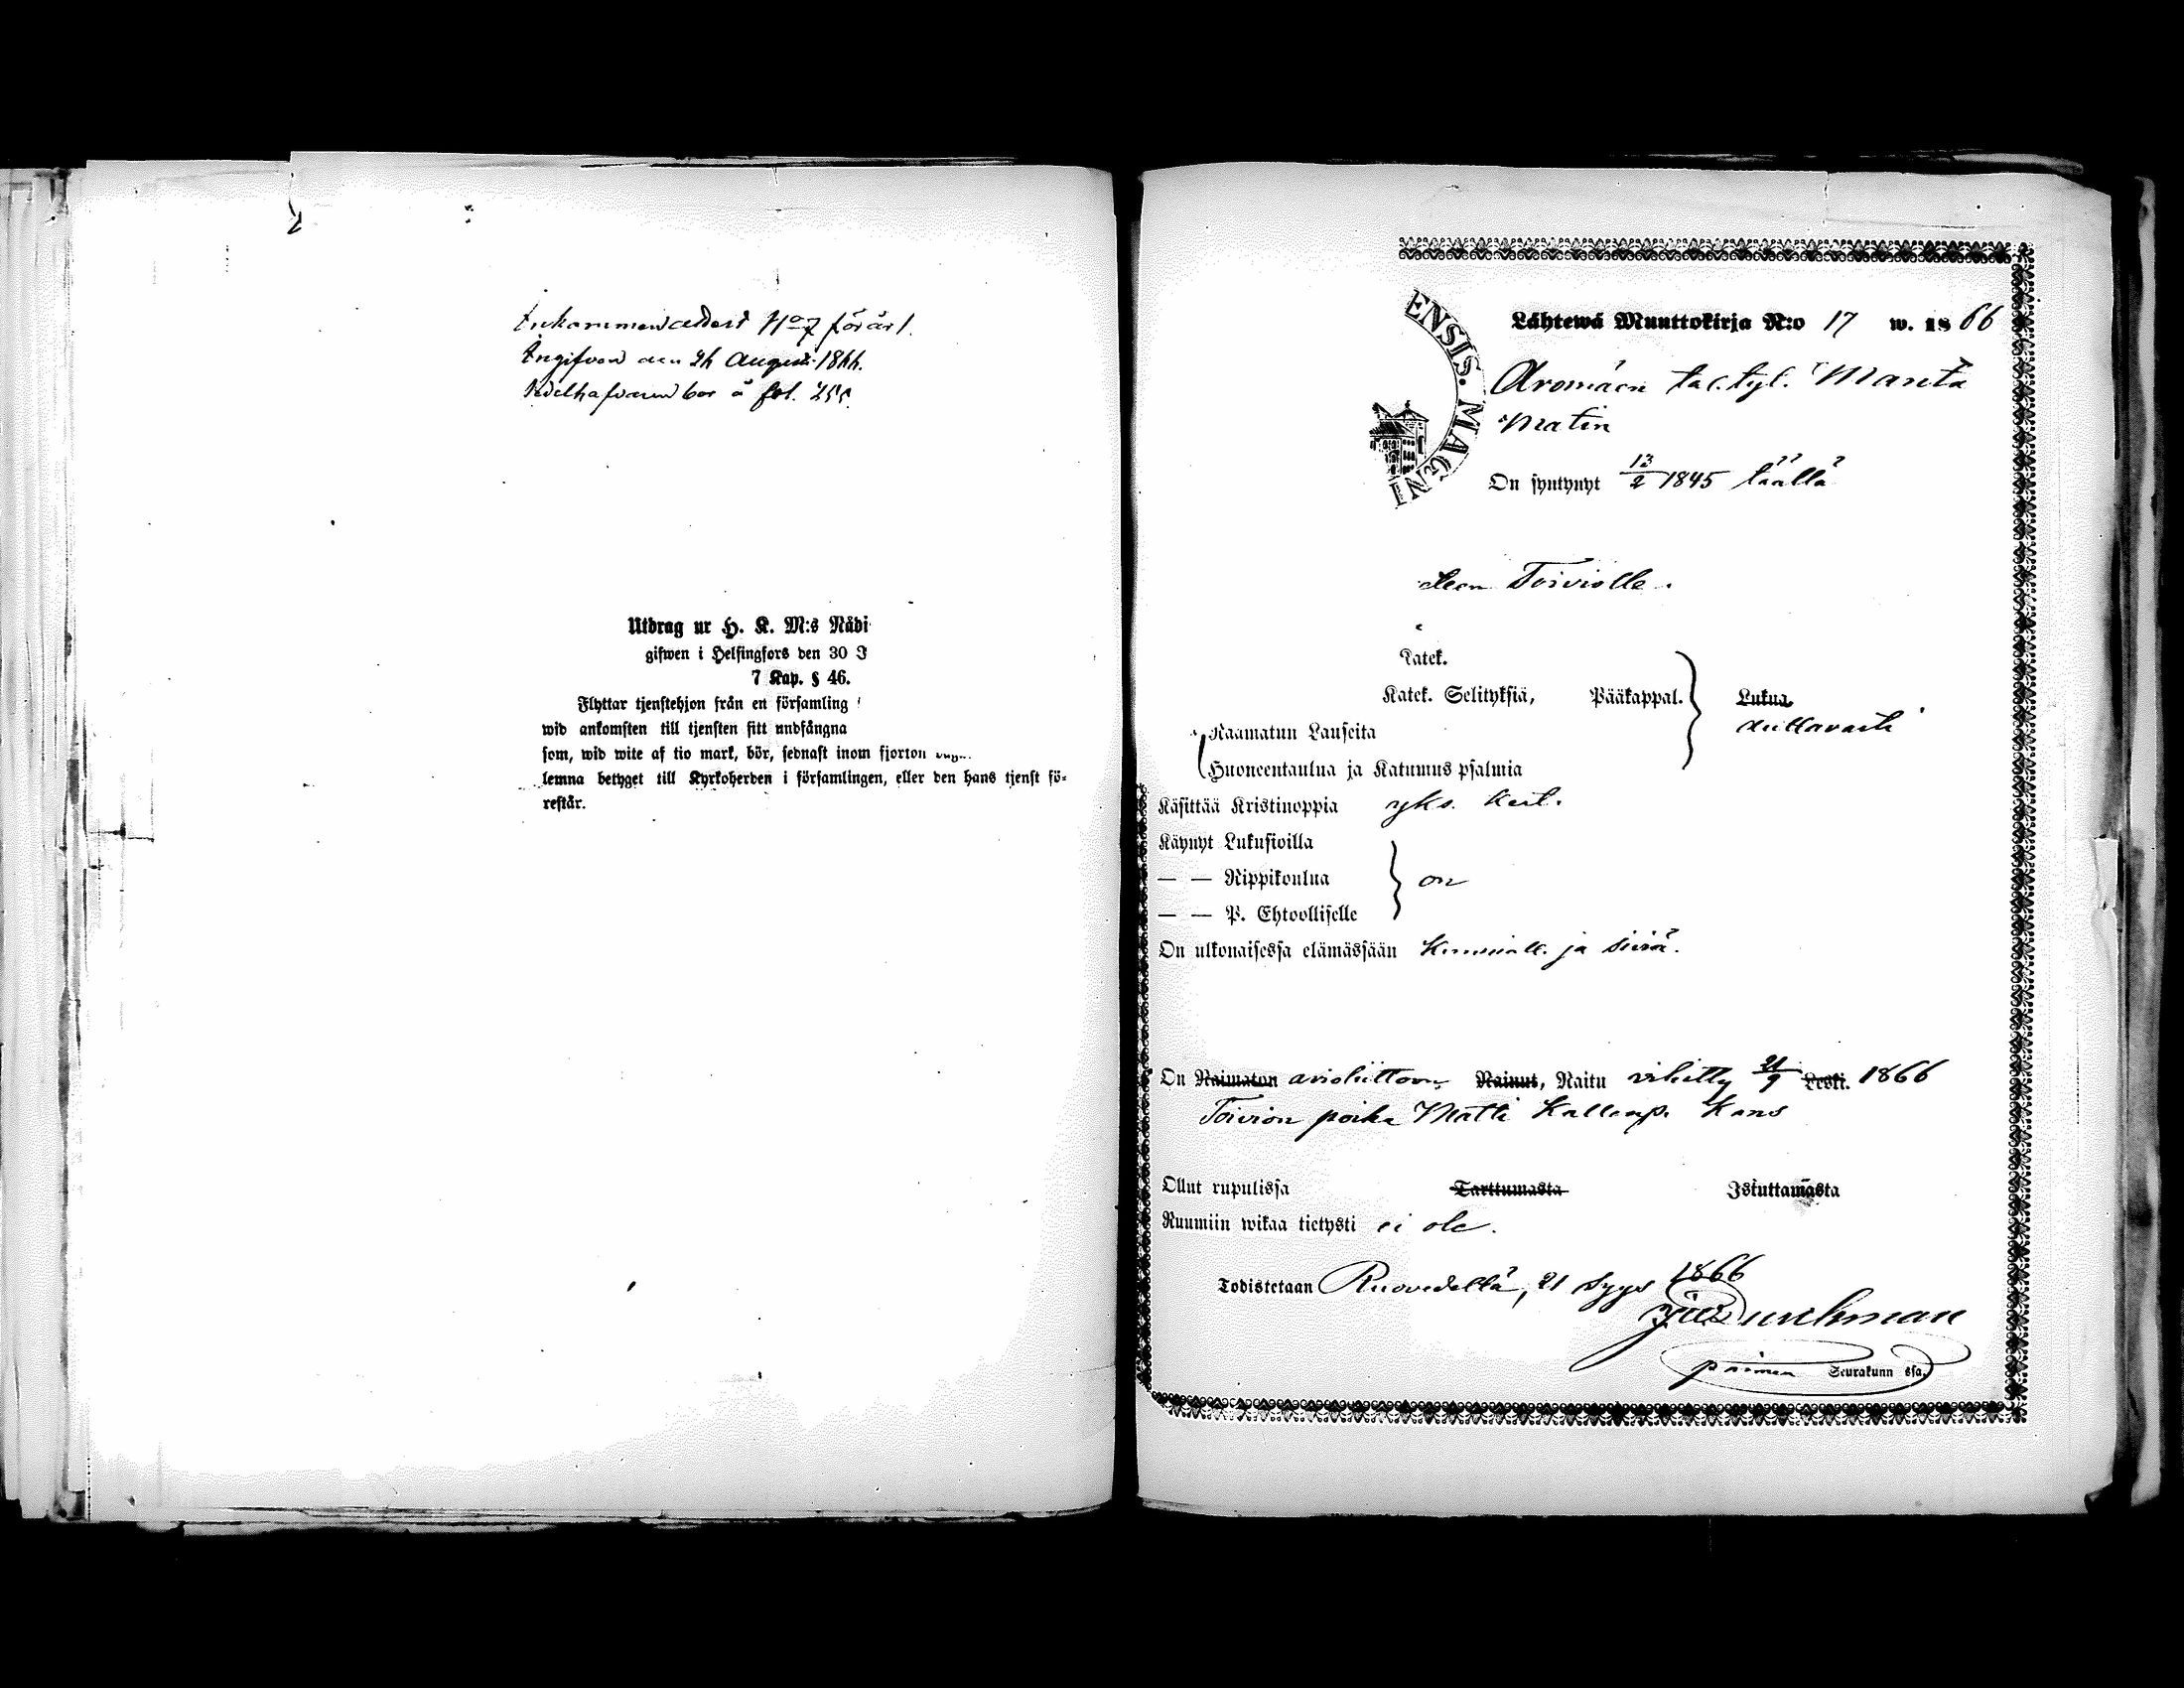 Inkommen attest No 7 för år
Ingifven den 24 Augusti 1866.
bor å fol. 255.
Utdrag ur H. K. M:s Nådi
gifwen i Helsingfors den 30 J
7 Kap. § 46.
Flyttar tjenstehjon från en församling
wid ankomsten till tjensten sitt undfångna
som, wid wite af tio mark, bör, sednast inom fjorton
lemna betyget till Kyrkoherden i församlingen, eller den hans tjenst fö-
restår.
ENSIS. MAGNI
Lähtewä Muuttokirja N:o 17 w. 1866
Aromäen tal. tyt. Manta
Matin
On syntynyt 13/2 1845 täällä
Toiviolle.
Katek.
Katek. Selityksiä, Pääkappal. Lukua
Raamatun Lauseita auttavasti
Huoneentaulua ja Katumus psalmia
Käsittää Kristinoppia yks. kert.
Käynyt Lukusioilla
— — Rippikoulua on
— — P. Ehtoolliselle
On ulkonaisessa elämässään kunniall. ja siviä.
On Naimaton avioliittoon Nainut, Naitu vihitty 21/9 Leski. 1866
Toivion poika Matti Kallenp. kans
Ollut rupulissa Tarttumasta Istuttamasta
Ruumiin wikaa tietysti ei ole.
Todistetaan Ruovedellä, 21 Syys 1866
Durchman
paimen Seurakunn ssa.